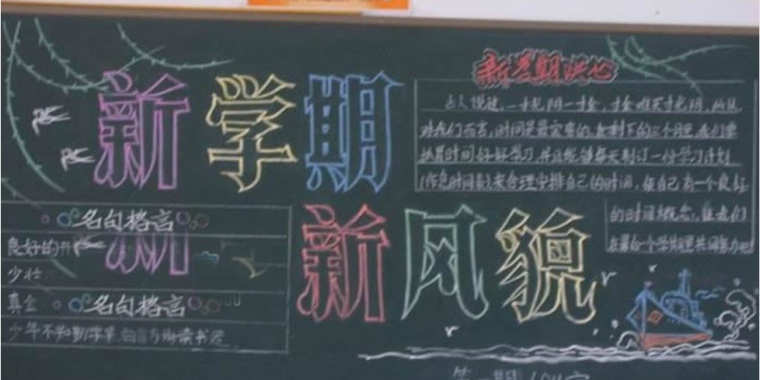 新学期
新风貌
新学期决心
古人说过,一寸光阴一寸金,寸金难买寸光阴,所以
对我们而言,时间是最宝贵的,在剩下的三个月里,我们要
抓紧时间好好学习,并且能够每天制订一份学习计划
(作息时间表)来合理安排自己的时间,使自己有一个良好
的时间概念,让我们
在最后一个学期里共同努力吧
名句格言
良好的开
少壮
新
名句格言
真金
少年不知勤学早,白首方悔读书迟
第一期